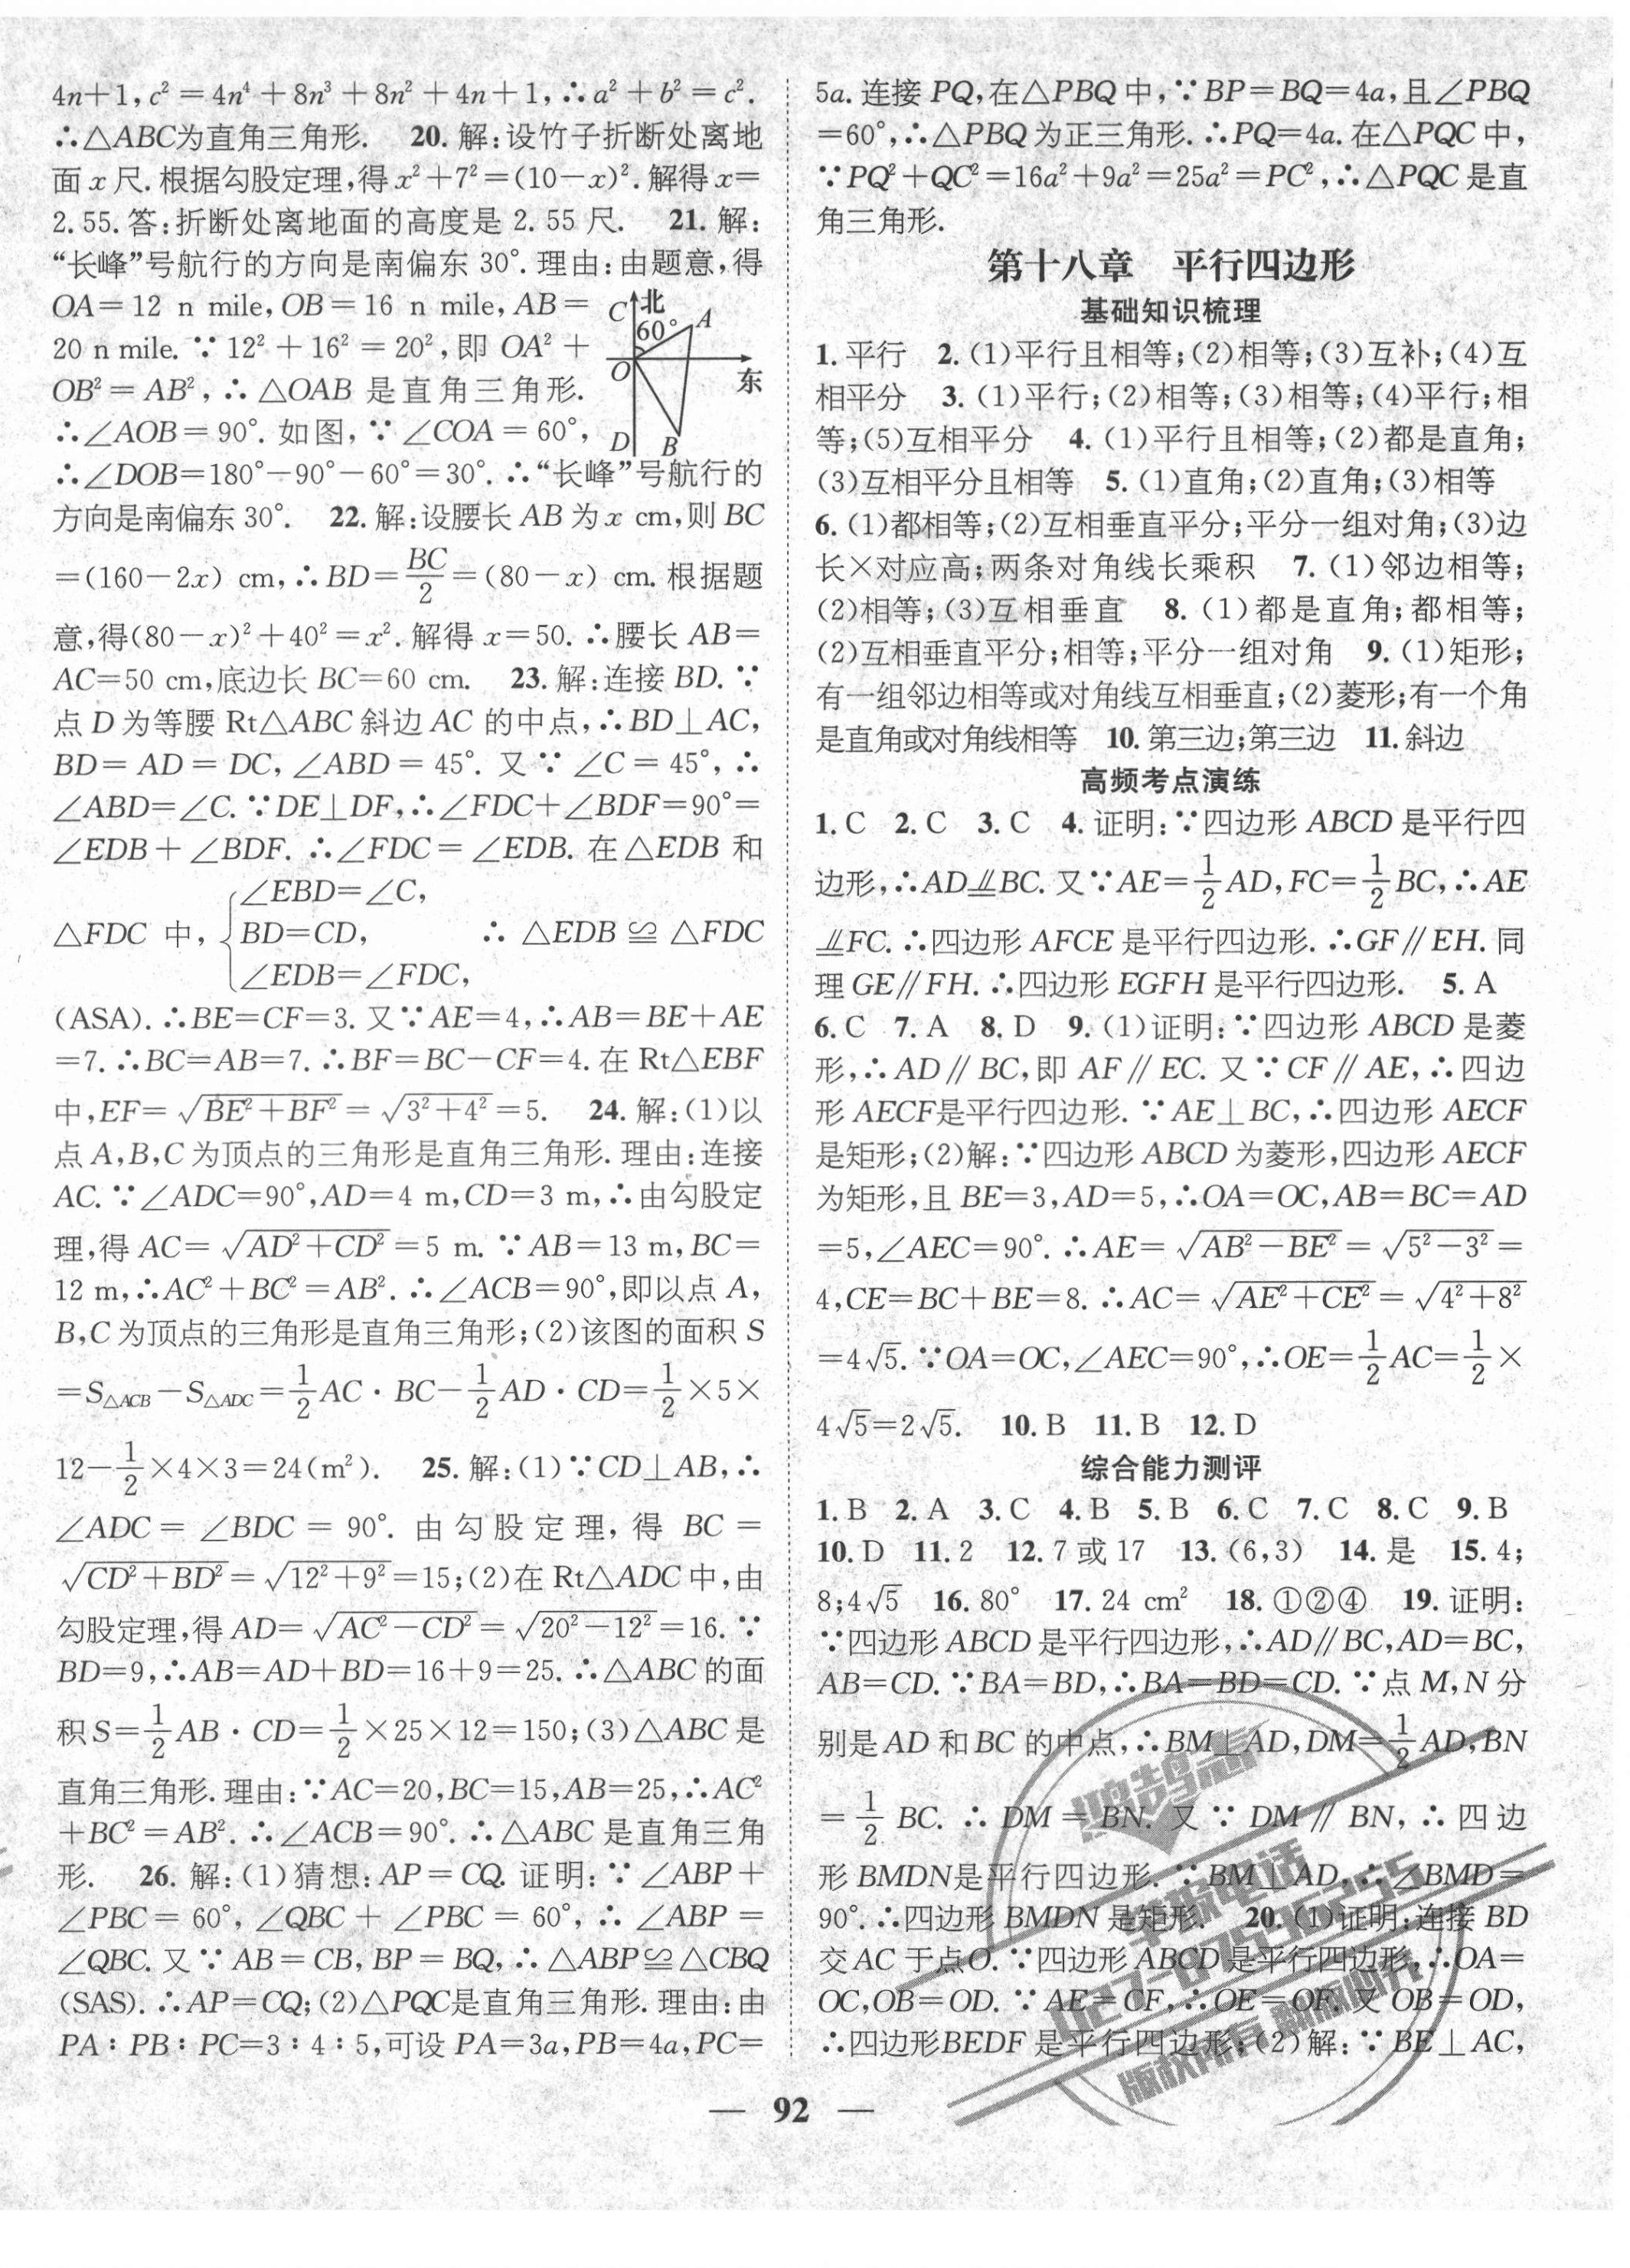 4n+1,c²=4n⁴+8n³+8n²+4n+1,∴a²+b²=c².
∴△ABC为直角三角形. 20.解:设竹子折断处离地
面x尺.根据勾股定理,得x²+7²=(10-x)².解得x=
2.55.答:折断处离地面的高度是2.55尺. 21.解:
“长峰”号航行的方向是南偏东30°.理由:由题意,得
OA=12 n mile,OB=16 n mile,AB=
20 n mile.∵12²+16²=20²,即OA²+
OB²=AB²,∴△OAB是直角三角形.
∴∠AOB=90°.如图,∵∠COA=60°,
C 北
60° A
O 东
D B
∴∠DOB=180°-90°-60°=30°.∴“长峰”号航行的
方向是南偏东30°. 22.解:设腰长AB为x cm,则BC
=(160-2x) cm,∴BD=BC/2=(80-x) cm.根据题
意,得(80-x)²+40²=x².解得x=50.∴腰长AB=
AC=50 cm,底边长BC=60 cm. 23.解:连接BD.∵
点D为等腰Rt△ABC斜边AC的中点,∴BD⊥AC,
BD=AD=DC,∠ABD=45°.又∵∠C=45°,∴
∠ABD=∠C.∵DE⊥DF,∴∠FDC+∠BDF=90°=
∠EDB+∠BDF.∴∠FDC=∠EDB.在△EDB和
△FDC中,{∠EBD=∠C,
BD=CD,
∠EDB=∠FDC, ∴△EDB≌△FDC
(ASA).∴BE=CF=3.又∵AE=4,∴AB=BE+AE
=7.∴BC=AB=7.∴BF=BC-CF=4.在Rt△EBF
中,EF=√(BE²+BF²)=√(3²+4²)=5. 24.解:(1)以
点A,B,C为顶点的三角形是直角三角形.理由:连接
AC.∵∠ADC=90°,AD=4 m,CD=3 m,∴由勾股定
理,得AC=√(AD²+CD²)=5 m.∵AB=13 m,BC=
12 m,∴AC²+BC²=AB².∴∠ACB=90°,即以点A,
B,C为顶点的三角形是直角三角形;(2)该图的面积S
=S△ACB-S△ADC=1/2AC·BC-1/2AD·CD=1/2×5×
12-1/2×4×3=24(m²). 25.解:(1)∵CD⊥AB,∴
∠ADC=∠BDC=90°.由勾股定理,得BC=
√(CD²+BD²)=√(12²+9²)=15;(2)在Rt△ADC中,由
勾股定理,得AD=√(AC²-CD²)=√(20²-12²)=16.∵
BD=9,∴AB=AD+BD=16+9=25.∴△ABC的面
积S=1/2AB·CD=1/2×25×12=150;(3)△ABC是
直角三角形.理由:∵AC=20,BC=15,AB=25,∴AC²
+BC²=AB².∴∠ACB=90°.∴△ABC是直角三角
形. 26.解:(1)猜想:AP=CQ.证明:∵∠ABP+
∠PBC=60°,∠QBC+∠PBC=60°,∴∠ABP=
∠QBC.又∵AB=CB,BP=BQ,∴△ABP≌△CBQ
(SAS).∴AP=CQ;(2)△PQC是直角三角形.理由:由
PA∶PB∶PC=3∶4∶5,可设PA=3a,PB=4a,PC=
5a.连接PQ,在△PBQ中,∵BP=BQ=4a,且∠PBQ
=60°,∴△PBQ为正三角形.∴PQ=4a.在△PQC中,
∵PQ²+QC²=16a²+9a²=25a²=PC²,∴△PQC是直
角三角形.
第十八章 平行四边形
基础知识梳理
1.平行 2.(1)平行且相等;(2)相等;(3)互补;(4)互
相平分 3.(1)平行;(2)相等;(3)相等;(4)平行;相
等;(5)互相平分 4.(1)平行且相等;(2)都是直角;
(3)互相平分且相等 5.(1)直角;(2)直角;(3)相等
6.(1)都相等;(2)互相垂直平分;平分一组对角;(3)边
长×对应高;两条对角线长乘积 7.(1)邻边相等;
(2)相等;(3)互相垂直 8.(1)都是直角;都相等;
(2)互相垂直平分;相等;平分一组对角 9.(1)矩形;
有一组邻边相等或对角线互相垂直;(2)菱形;有一个角
是直角或对角线相等 10.第三边;第三边 11.斜边
高频考点演练
1.C 2.C 3.C 4.证明:∵四边形ABCD是平行四
边形,∴AD⫽BC.又∵AE=1/2AD,FC=1/2BC,∴AE
⫽FC.∴四边形AFCE是平行四边形.∴GF∥EH.同
理GE∥FH.∴四边形EGFH是平行四边形. 5.A
6.C 7.A 8.D 9.(1)证明:∵四边形ABCD是菱
形,∴AD∥BC,即AF∥EC.又∵CF∥AE,∴四边
形AECF是平行四边形.∵AE⊥BC,∴四边形AECF
是矩形;(2)解:∵四边形ABCD为菱形,四边形AECF
为矩形,且BE=3,AD=5,∴OA=OC,AB=BC=AD
=5,∠AEC=90°.∴AE=√(AB²-BE²)=√(5²-3²)=
4,CE=BC+BE=8.∴AC=√(AE²+CE²)=√(4²+8²)
=4√5.∵OA=OC,∠AEC=90°,∴OE=1/2AC=1/2×
4√5=2√5. 10.B 11.B 12.D
综合能力测评
1.B 2.A 3.C 4.B 5.B 6.C 7.C 8.C 9.B
10.D 11.2 12.7或17 13.(6,3) 14.是 15.4;
8;4√5 16.80° 17.24 cm² 18.①②④ 19.证明:
∵四边形ABCD是平行四边形,∴AD∥BC,AD=BC,
AB=CD.∵BA=BD,∴BA=BD=CD.∵点M,N分
别是AD和BC的中点,∴BM⊥AD,DM=1/2AD,BN
=1/2BC.∴DM=BN.又∵DM∥BN,∴四边
形BMDN是平行四边形.∵BM⊥AD,∴∠BMD=
90°.∴四边形BMDN是矩形. 20.(1)证明:连接BD
交AC于点O.∵四边形ABCD是平行四边形,∴OA=
OC,OB=OD.∵AE=CF,∴OE=OF.又OB=OD,
∴四边形BEDF是平行四边形;(2)解:∵BE⊥AC,
鸿鹄志
举报电话
版权所有 翻版必究
— 92 —